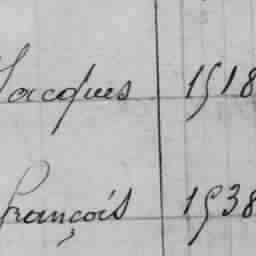 Jacques 1918
François 1938